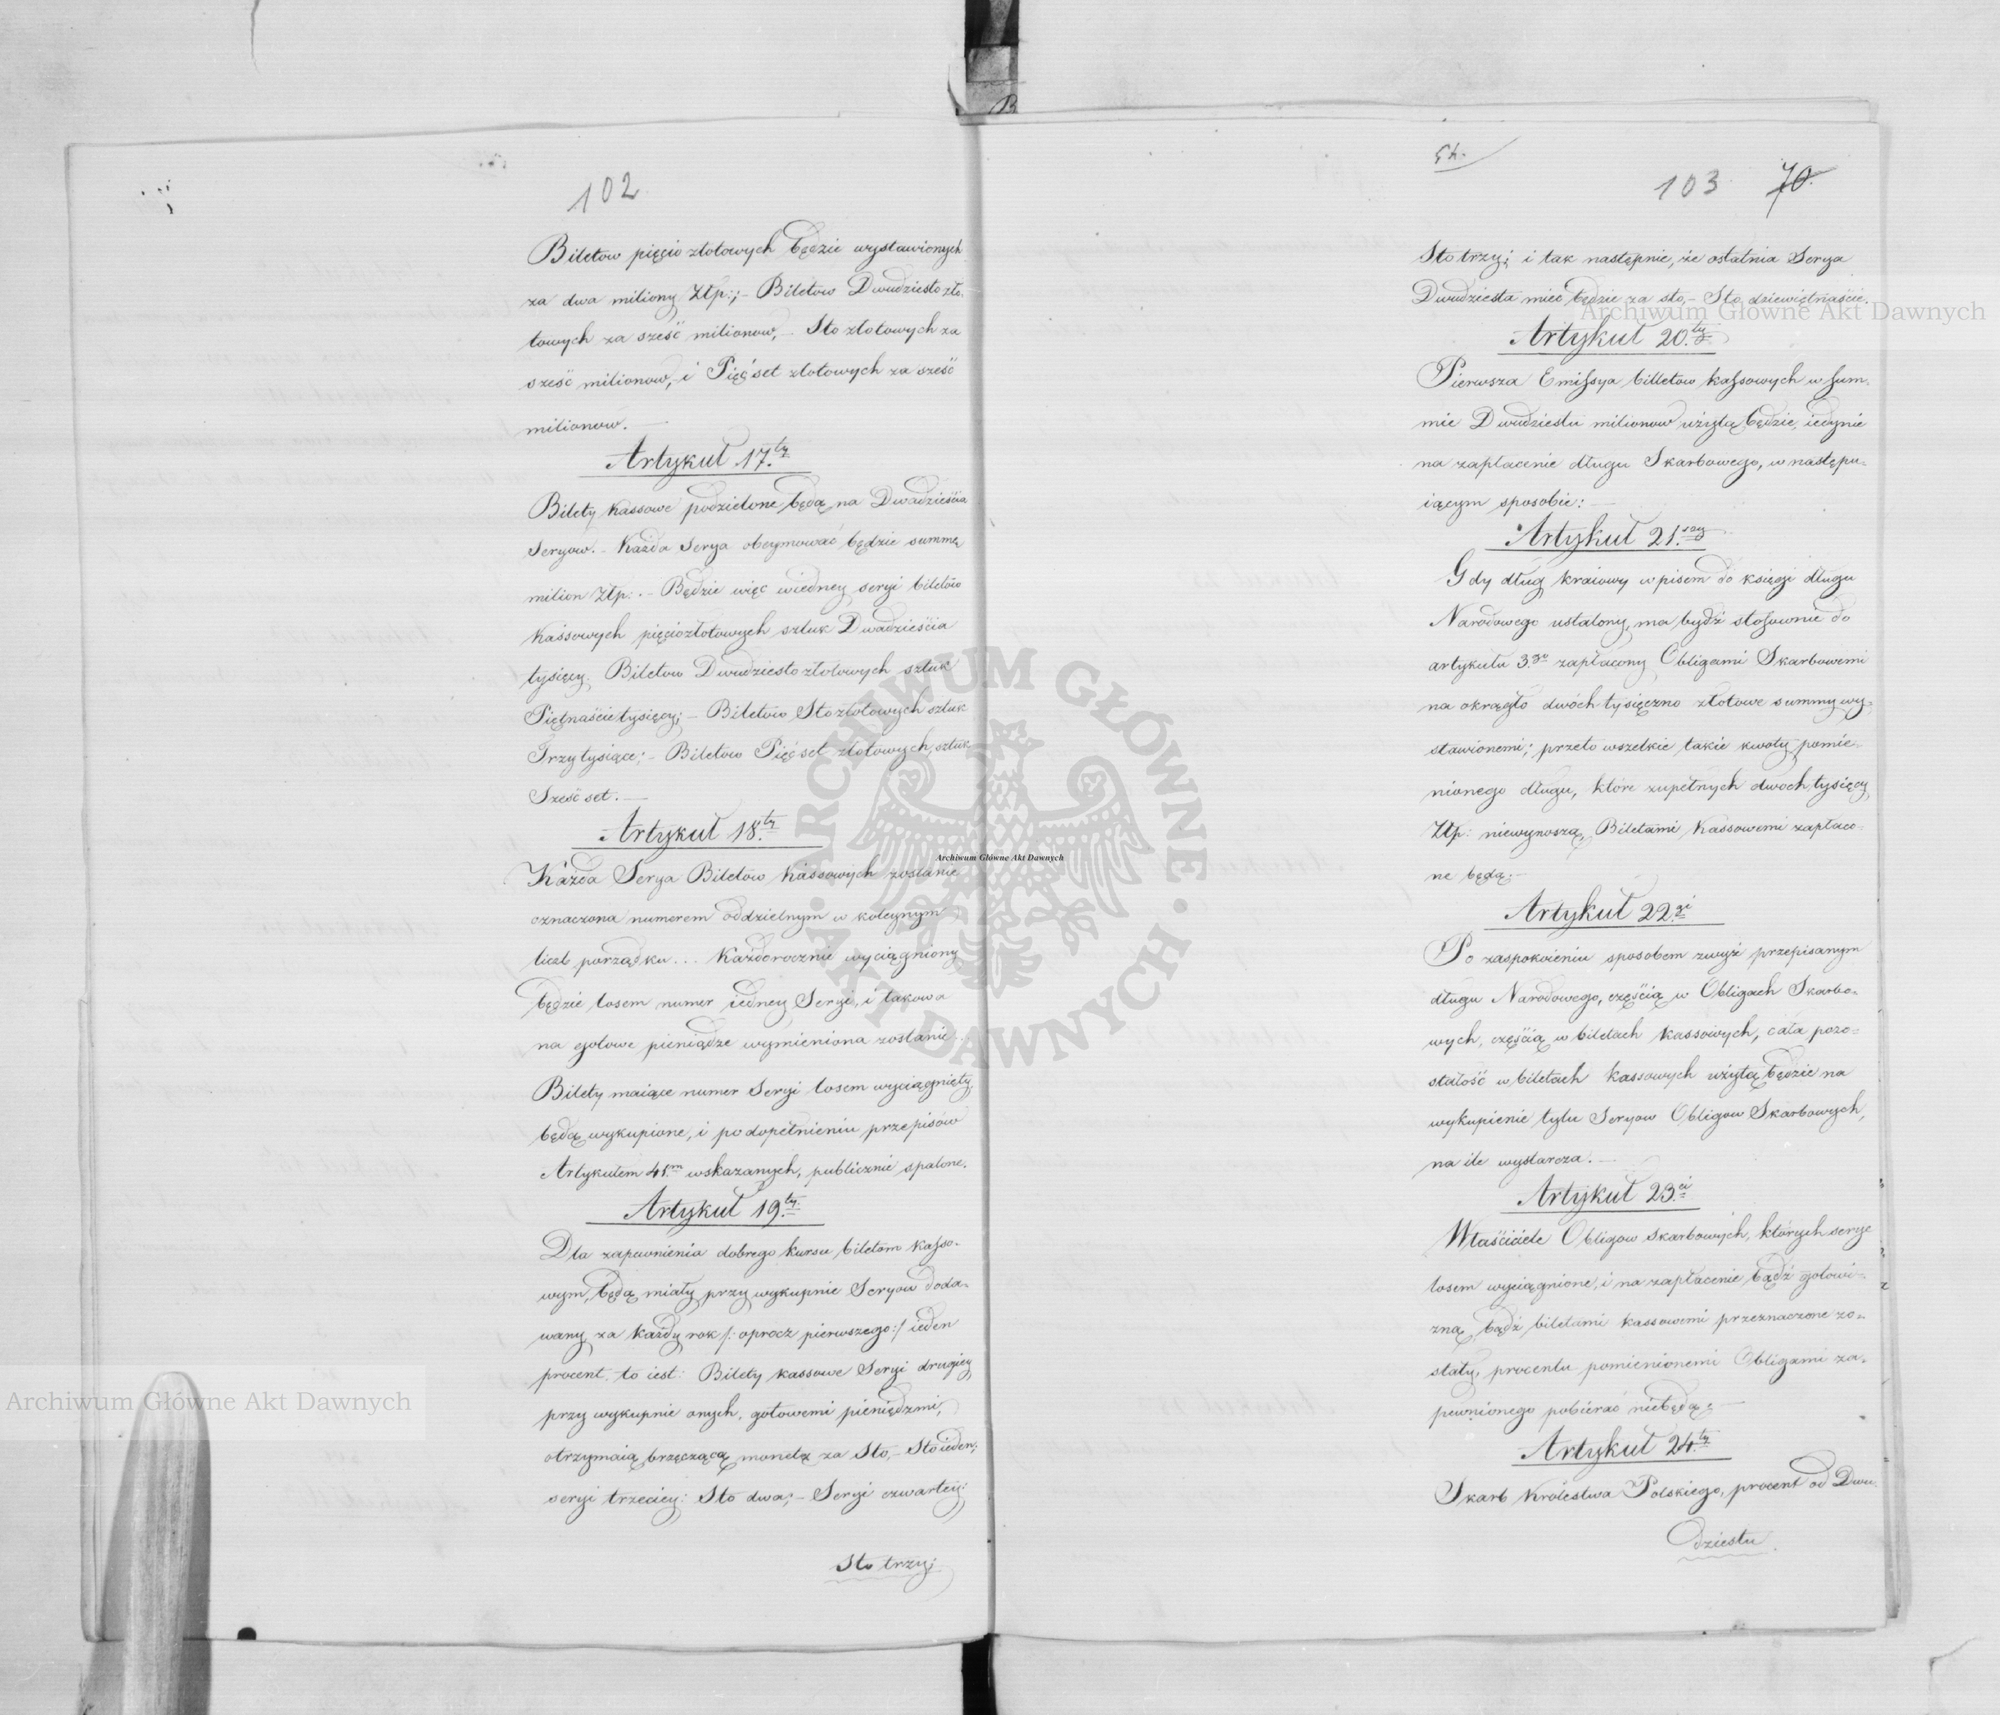 102
Biletow pięcio złotowych będzie wystawionych
za dwa miliony Złp:;- Biletow Dwudziesto zło-
towych za sześć milionow, - Sto złotowych za
sześć milionow, i Pięćset złotowych za sześć
milionow. -
Artykuł 17.ty
Bilety kassowe podzielone będą na Dwadzieścia
Seryow. - Każda Serya obeymować będzie summę
milion Złp: . - Będzie więc w iedney seryi biletów
kassowych pięciozłotowych sztuk Dwadzieścia
tysięcy. Biletow Dwudziesto złotowych sztuk
Piętnaście tysięcy; - Biletów Sto złotowych sztuk
Trzy tysiące; - Biletów Pięć set złotowych, sztuk
Sześć set. -
Artykuł 18.ty
Każda Serya Biletów kassowych zostanie
oznaczona numerem oddzielnym w koleynym
liczb porządku... Każdorocznie wyciągniony
będzie losem numer iedney Seryi, i takowa
na gotowe pieniądze wymieniona zostanie...
Bilety maiące numer Seryi losem wyciągnięty,
będą wykupione, i po dopełnieniu przepisów
Artykułem 41.m wskazanych, publicznie spalone.
Artykuł 19.ty
Dla zapewnienia dobrego kursu biletom kasso-
wym, będą miały przy wykupnie Seryow doda-
wany za każdy rok /: oprocz pierwszego:/ ieden
procent, to iest: Bilety kassowe Seryi drugiey
przy wykupnie onych, gotowemi pieniędzmi,
otrzymaią brzęczącą monetą za Sto, - Sto ieden;
seryi trzeciey: Sto dwa; - Seryi czwartey:
Sto trzy;
54.
103 70.
Sto trzy; i tak następnie, że ostatnia Serya
Dwudziesta mieć będzie za sto, - Sto dziewiętnaście.
Artykuł 20.ty
Pierwsza Emissya billetow kassowych w sum-
mie Dwudziestu milionow użytą będzie, iedynie
na zapłacenie długu Skarbowego, w następu-
iącym sposobie: -
Artykuł 21.szy
Gdy dług kraiowy wpisem do księgi długu
Narodowego ustalony, ma bydź stosownie do
artykułu 3.go zapłacony Obligami Skarbowemi
na okrągło dwóch tysięczno złotowe summy wy-
stawionemi; przeto wszelkie takie kwoty pomie-
nionego długu, które zupełnych dwoch tysięcy
Złp: niewynoszą, Biletami Kassowemi zapłaco-
ne będą. -
Artykuł 22.gi
Po zaspokoieniu sposobem zwyż przepisanym
długu Narodowego, częścią w Obligach Skarbo-
wych, częścią w biletach kassowych, cała pozo-
stałość w biletach kassowych użytą będzie na
wykupienie tylu Seryow Obligow Skarbowych,
na ile wystarcza. -
Artykuł 23.ci
Właściciele Obligow Skarbowych, których serye
losem wyciągnione, i na zapłacenie bądź gotowi-
zną, bądź biletami kassowemi przeznaczone zo-
stały, procentu pomienionemi Obligami za-
pewnionego pobierać niebędą; -
Artykuł 24.ty
Skarb Królestwa Polskiego, procent od Dwu-
dziestu
Archiwum Główne Akt Dawnych
Archiwum Główne Akt Dawnych
Archiwum Główne Akt Dawnych
ARCHIWUM GŁÓWNE AKT DAWNYCH